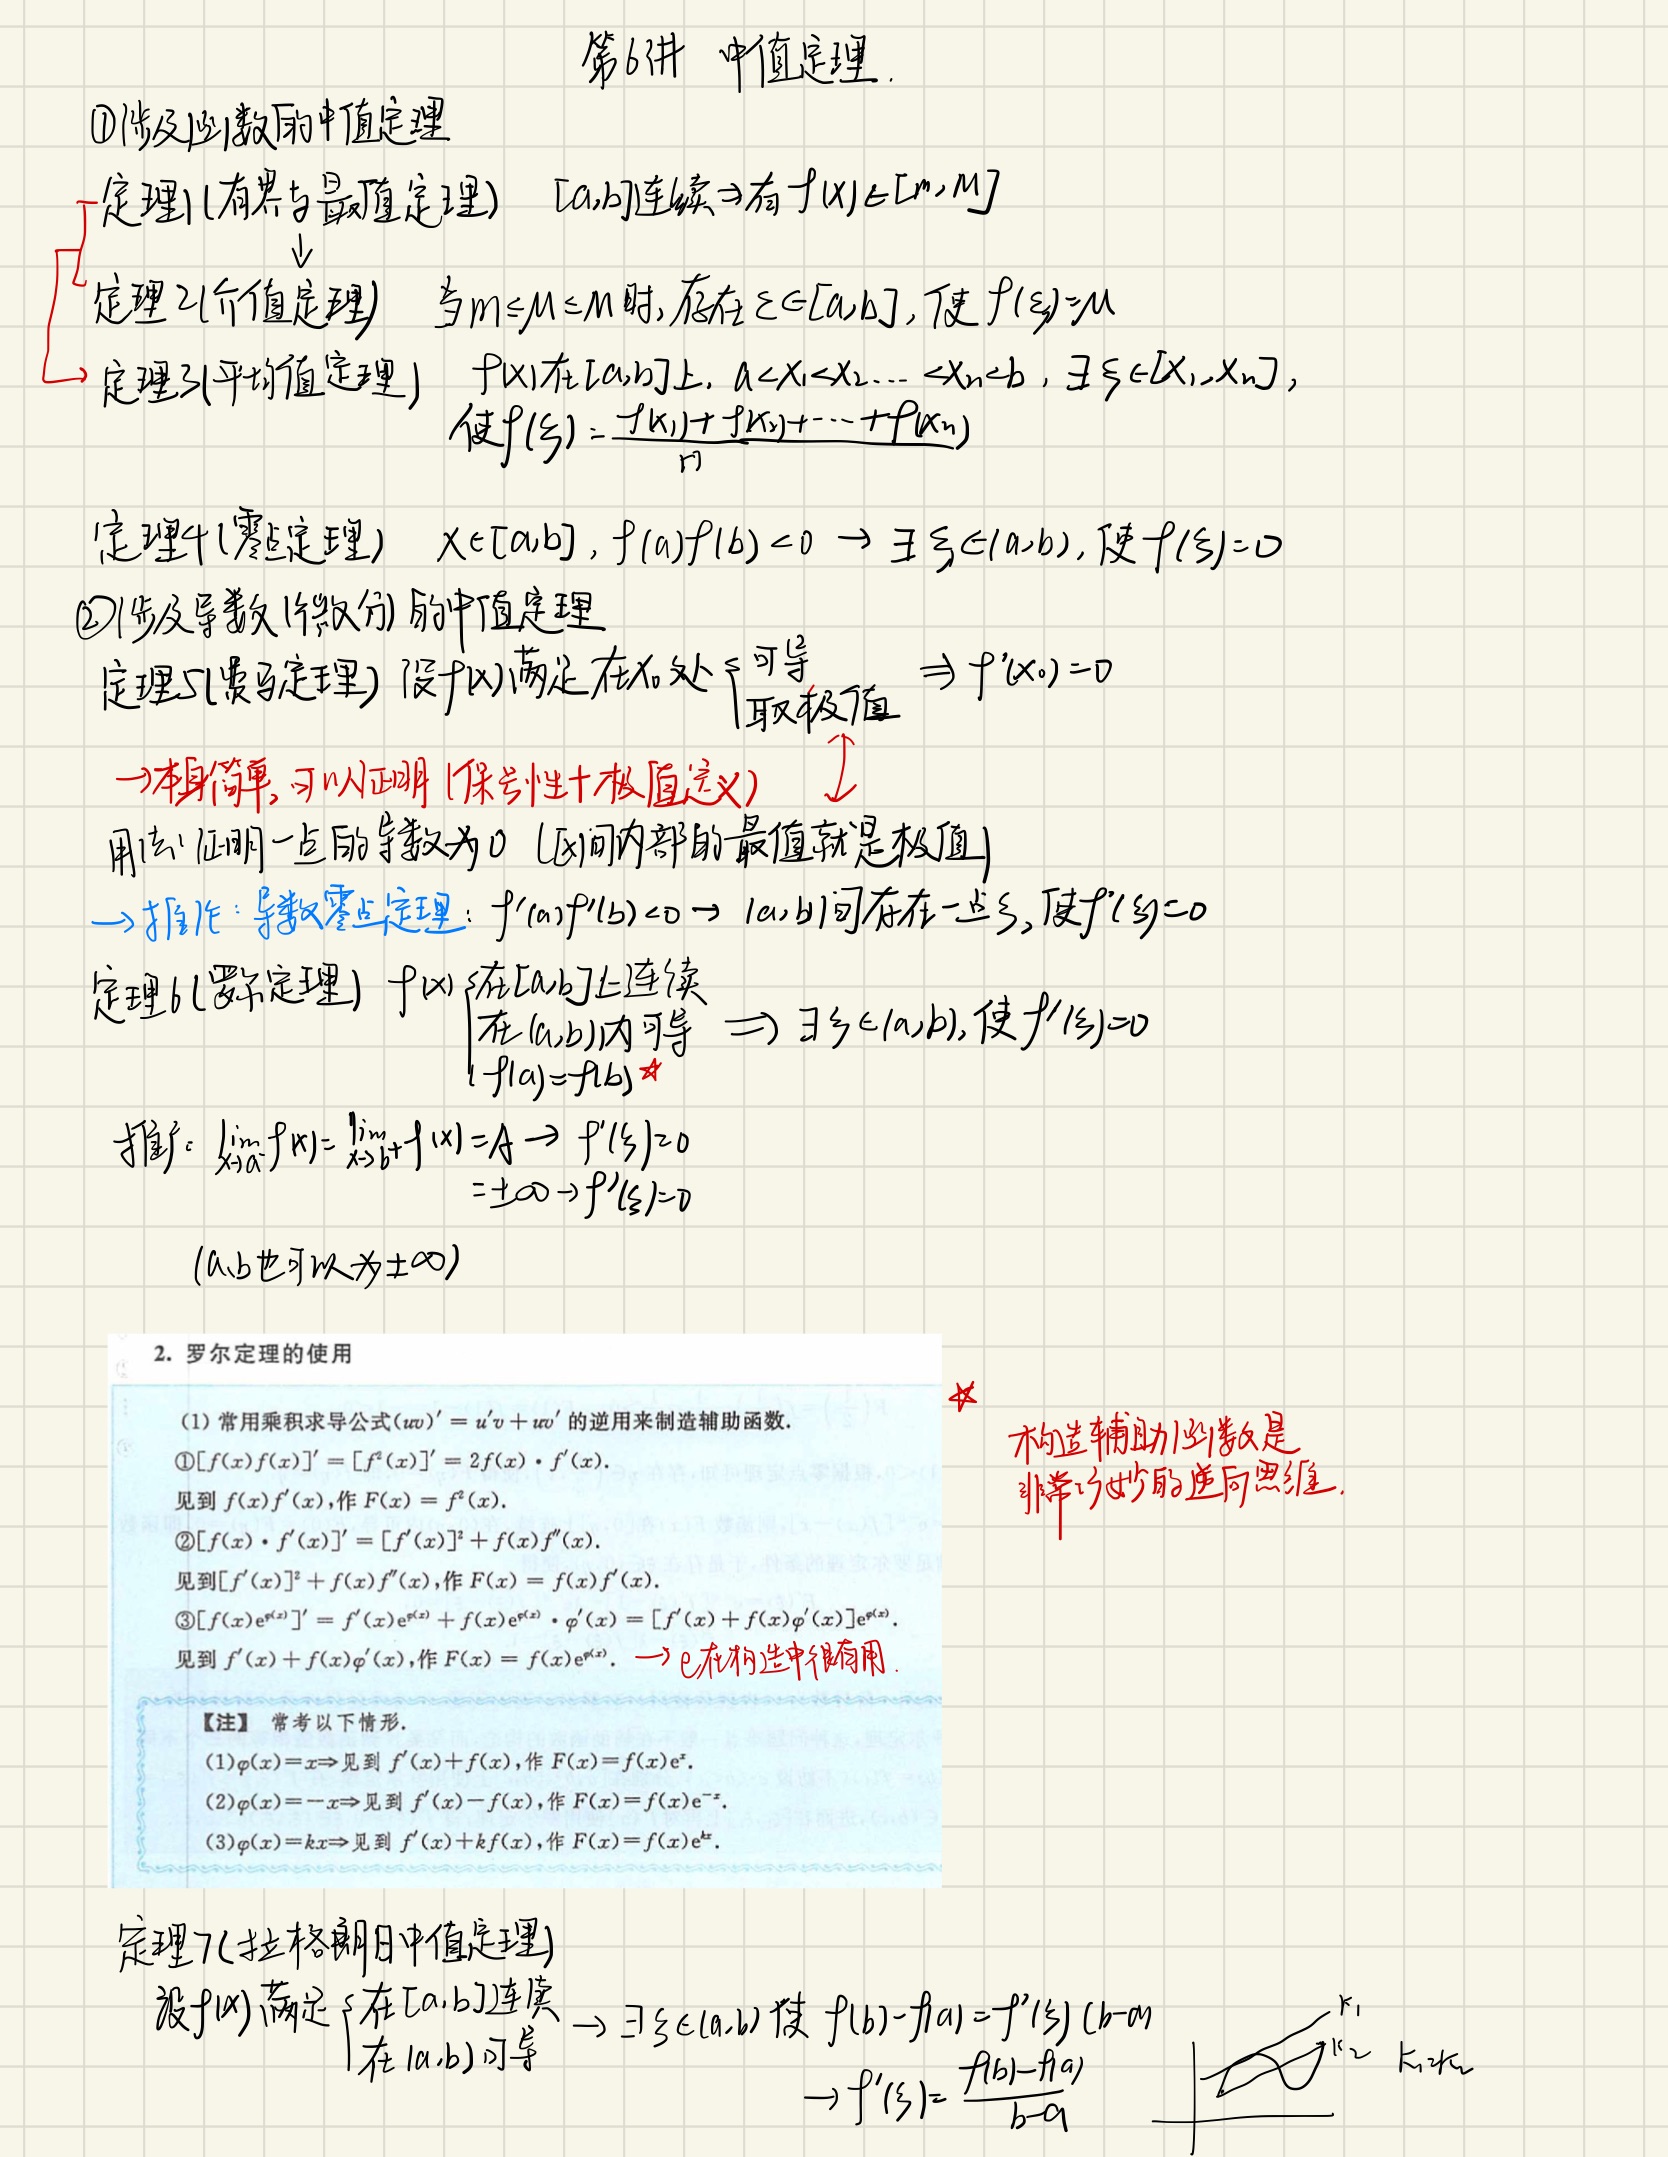 第6讲 中值定理.
①涉及函数的中值定理
定理1(有界与最值定理) [a,b]连续⇒有 f(x)∈[m,M]
↓
定理2(介值定理) 当m≤μ≤M时,存在ξ∈[a,b],使 f(ξ)=μ
定理3(平均值定理) f(x)在[a,b]上. a<x₁<x₂...<xₙ<b, ∃ξ∈[x₁,xₙ],
使f(ξ)=\frac{f(x₁)+f(x₂)+…+f(xₙ)}{n}
定理4(零点定理) x∈[a,b], f(a)f(b)<0 → ∃ξ∈(a,b),使f(ξ)=0
②涉及导数(微分)的中值定理
定理5(费马定理) 设f(x)满足在x₀处{可导 ⇒ f'(x₀)=0
取极值
→本身简单,可以证明(保号性+极值定义)
用法:证明一点的导数为0 (区间内部的最值就是极值)
→推论:导数零点定理: f'(a)f'(b)<0→ (a,b)间存在一点ξ,使f'(ξ)=0
定理6(罗尔定理) f(x){在[a,b]上连续
在(a,b)内可导 ⇒ ∃ξ∈(a,b),使f'(ξ)=0
f(a)=f(b)☆
推广: lim_{x→a⁻}f(x)=lim_{x→b⁺}f(x)=A→ f'(ξ)=0
=±∞→f'(ξ)=0
(a,b也可以为±∞)
2. 罗尔定理的使用
(1) 常用乘积求导公式(uv)′=u′v+uv′的逆用来制造辅助函数.
☆
①[f(x)f(x)]′=[f²(x)]′=2f(x)·f′(x).
见到 f(x)f′(x),作F(x)=f²(x).
②[f(x)·f′(x)]′=[f′(x)]²+f(x)f″(x).
见到[f′(x)]²+f(x)f″(x),作F(x)=f(x)f′(x).
③[f(x)e^{φ(x)}]′=f′(x)e^{φ(x)}+f(x)e^{φ(x)}·φ′(x)=[f′(x)+f(x)φ′(x)]e^{φ(x)}.
见到 f′(x)+f(x)φ′(x),作F(x)=f(x)e^{φ(x)}. →e在构造中很有用.
构造辅助函数是
非常巧妙的逆向思维.
【注】 常考以下情形.
(1)φ(x)=x⇒见到 f′(x)+f(x),作F(x)=f(x)eˣ.
(2)φ(x)=-x⇒见到 f′(x)-f(x),作F(x)=f(x)e⁻ˣ.
(3)φ(x)=kx⇒见到 f′(x)+kf(x),作F(x)=f(x)e^{kx}.
定理7(拉格朗日中值定理)
设f(x)满足{在[a,b]连续 → ∃ξ∈(a,b)使 f(b)-f(a)=f'(ξ)(b-a)
在(a,b)可导
→f'(ξ)=\frac{f(b)-f(a)}{b-a}
k₁
k₂ k₁=k₂